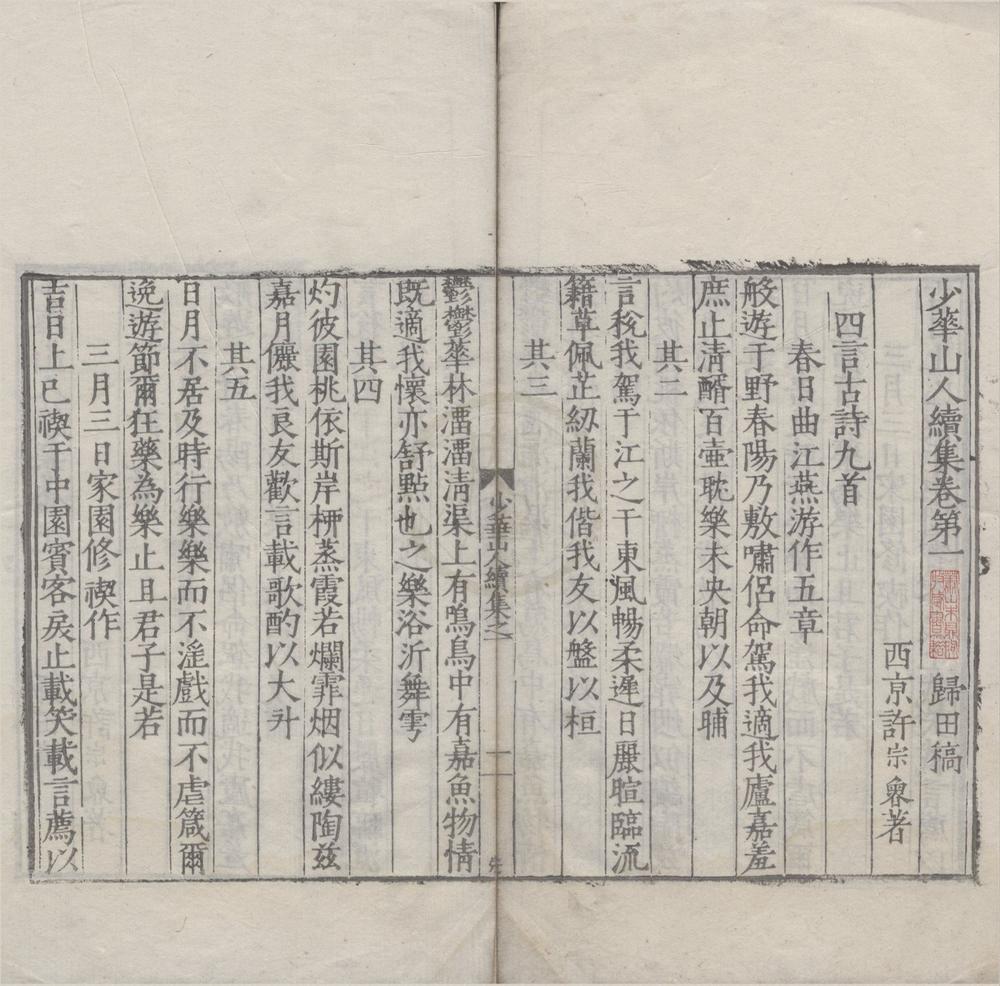 少華山人續集卷第一　歸田稿
西京許宗魯著
四言古詩九首
春日曲江燕游作五章
般遊于野春陽乃敷嘯侶命駕我適我廬嘉羞
庶止淸醑百壷耽樂未央朝以及晡
其二
言稅我駕于江之干東風暢柔遲日麗暄臨流
籍草佩芷紉蘭我偕我友以盤以桓
其三
鬱鬱華林湝湝淸渠上有鳴鳥中有嘉魚物情
旣適我懷亦舒㸃也之樂浴沂舞雩
其四
灼彼園桃依斯岸栁蒸霞若爛霏烟似縷陶兹
嘉月儷我良友歡言載歌酌以大升
其五
日月不居及時行樂樂而不滛戲而不虐箴爾
逸遊節爾狂藥為樂止且君子是若
三月三日家園修禊作
吉日上巳禊于中園賓客戾止載笑載言薦以
少華山人續集之一
一